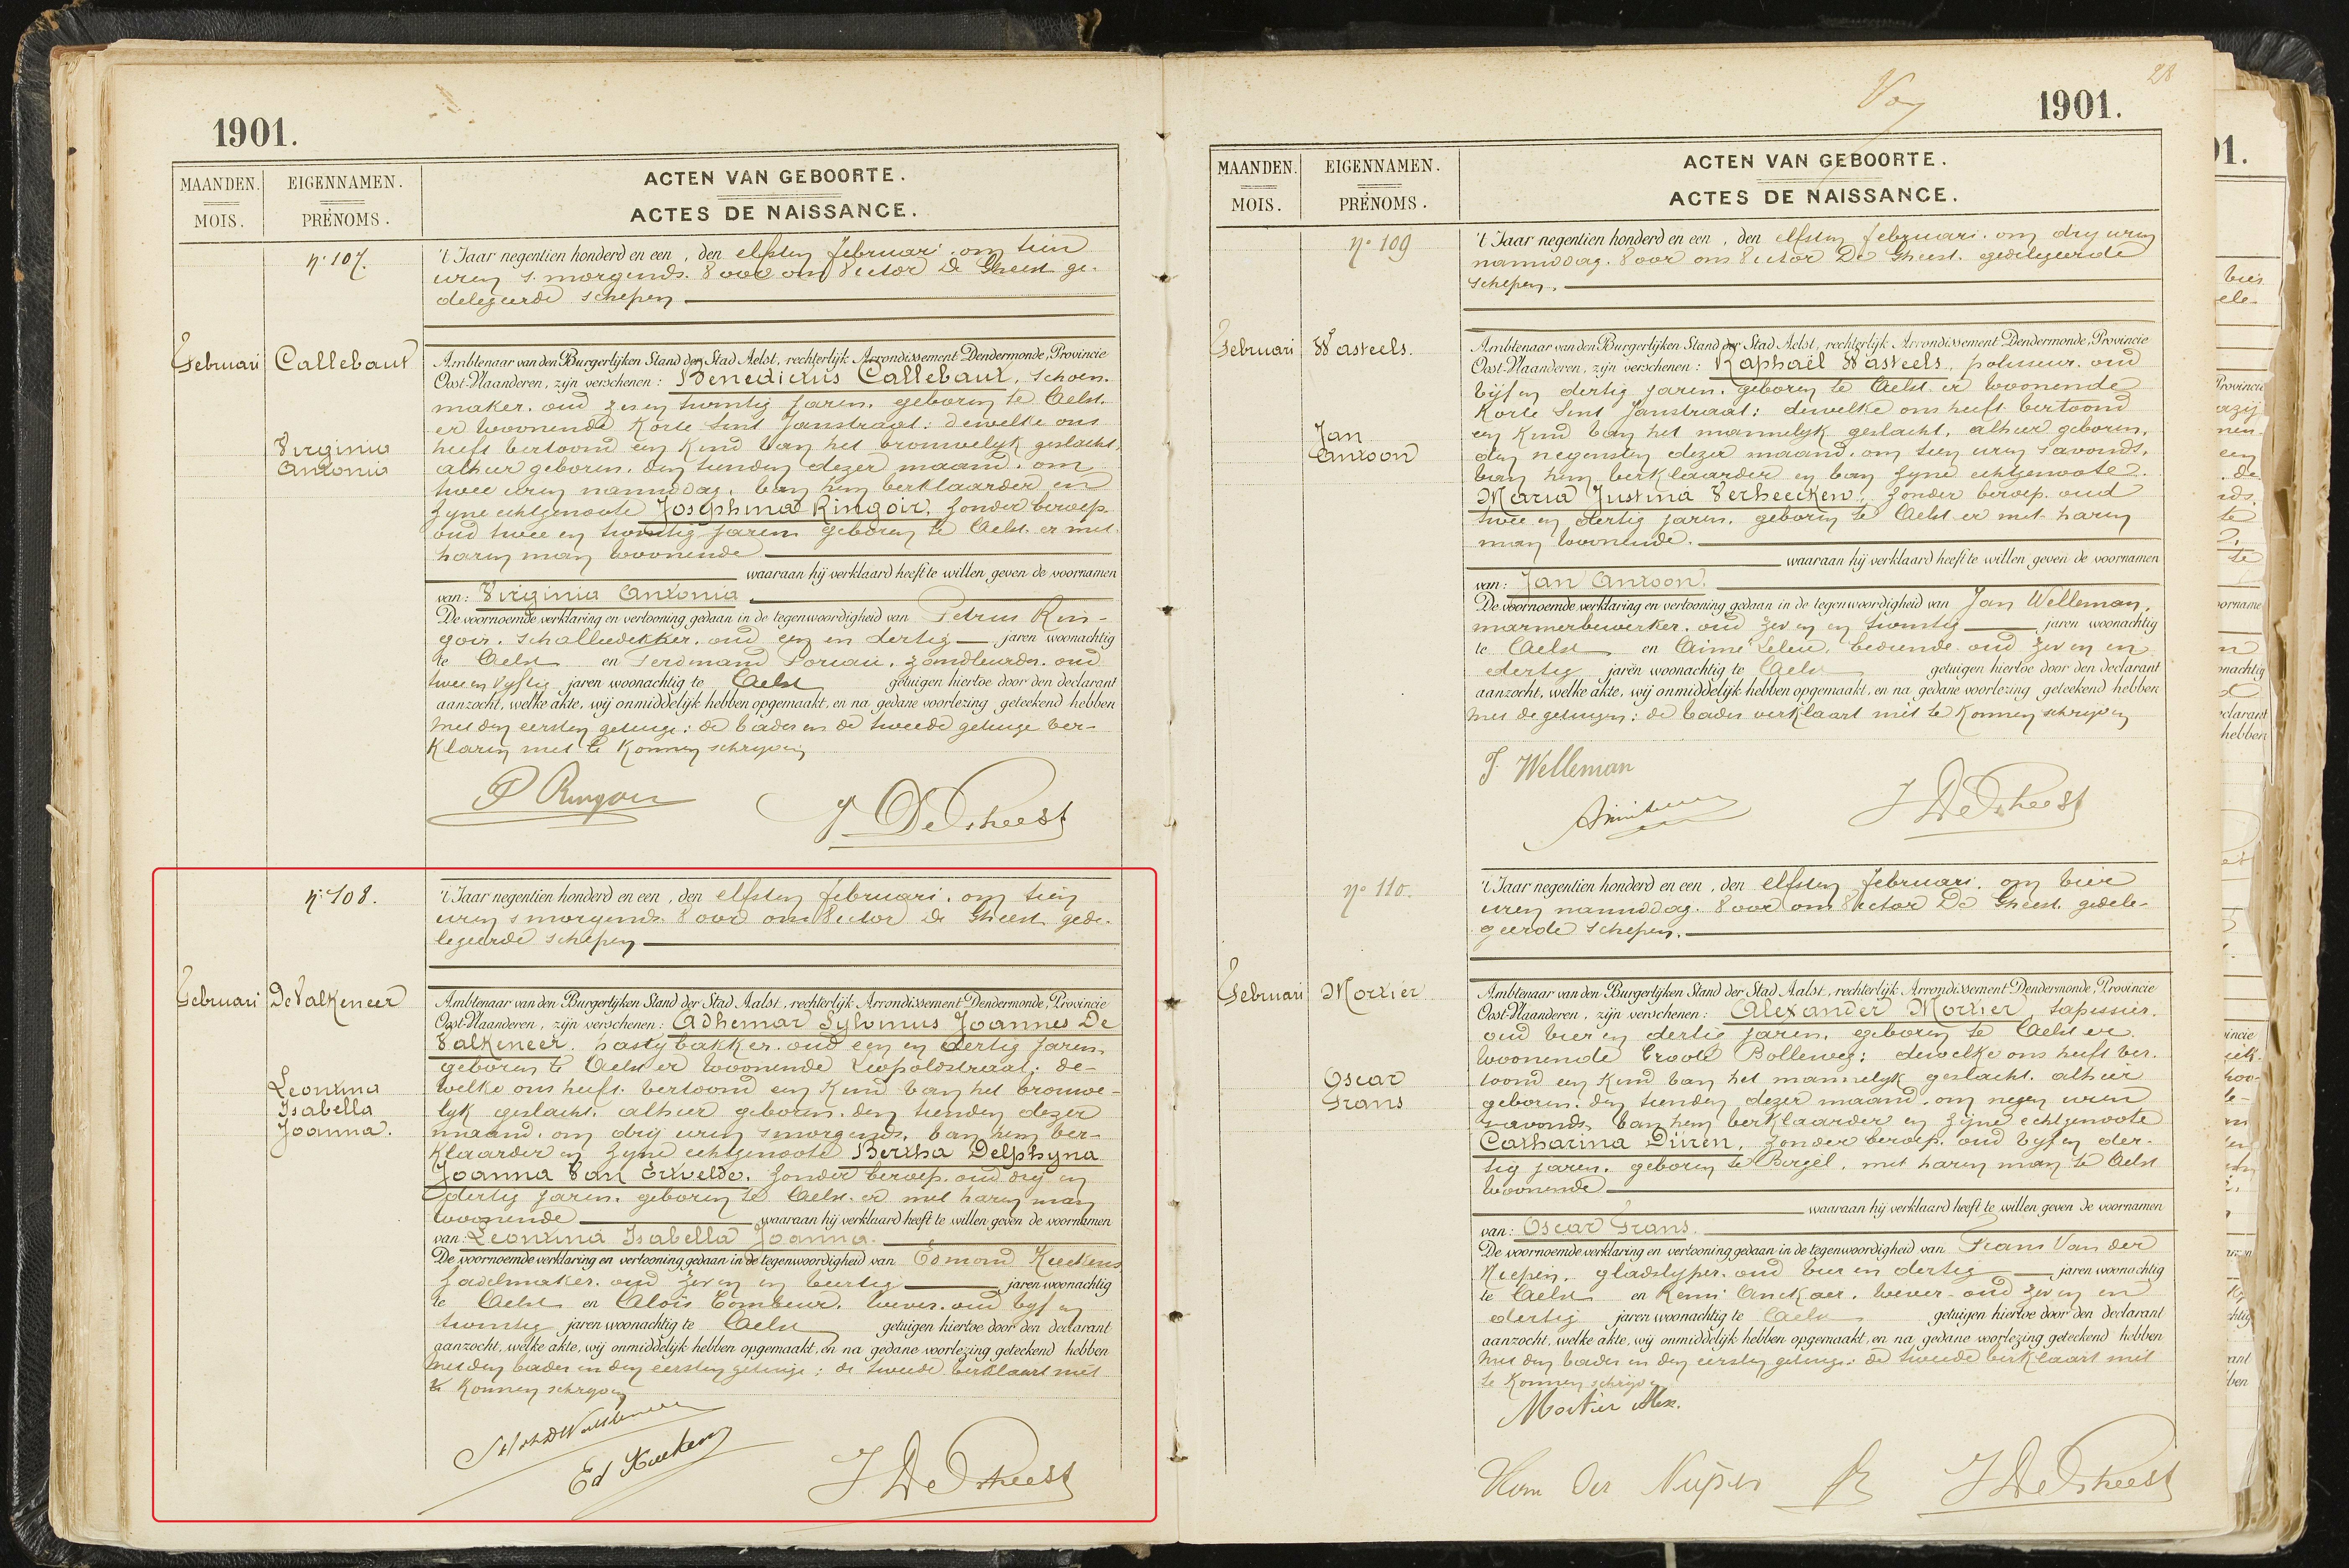 1901.
MAANDEN.
MOIS.
EIGENNAMEN.
PRÉNOMS.
ACTEN VAN GEBOORTE.
ACTES DE NAISSANCE.
N° 107.
't Jaar negentien honderd en een, den elfsten februari. om tien
uren s'morgends. Voor ons Victor De Gheest ge-
delegeerde schepen
Februari
Callebaut
Virginia
Antonia
Ambtenaar van den Burgerlijken Stand der Stad Aelst, rechterlijk Arrondissement Dendermonde, Provincie
Oost-Vlaanderen, zijn verschenen: Benedictus Callebaut, schoen-
maker. oud zes en twintig jaren. geboren te Aelst.
er woonende Korte Sint Janstraat: dewelke ons
heeft vertoond een Kind van het vrouwelyk geslacht,
alhier geboren. den tienden dezer maand. om
twee uren nanoddag. van hem verklaarder en
zyne echtgenoote Josephina Ringoir, zonder beroep.
oud twee en twintig jaren geboren te Aelst. er met
haren man woonende
waaraan hij verklaard heeft te willen geven de voornamen
van: Virginia Antonia.
De voornoemde verklaring en vertooning gedaan in de tegenwoordigheid van Petrus Rin-
goir. schalliedekker. oud een en dertig jaren woonachtig
te Aelst en Ferdinand zandleurder. oud
twee en vyftig jaren woonachtig te Aelst getuigen hiertoe door den declarant
aanzocht, welke akte, wij onmiddelijk hebben opgemaakt, en na gedane voorlezing geteekend hebben
met den eersten getuige: de vader en de tweede getuige ver-
klaren niet te Konnen schryven
P Ringoir
V. De Gheest
N° 108.
't Jaar negentien honderd en een, den elfsten februari. om tien
uren s'morgends. Voor ons Victor De Gheest gede-
legeerde schepen
Februari
De Valkeneer
Leontina
Isabella
Joanna.
Ambtenaar van den Burgerlijken Stand der Stad Aalst, rechterlijk Arrondissement Dendermonde, Provincie
Oost-Vlaanderen, zijn verschenen: Adhemar Sylvinus Joannes De
Valkeneer. pasteybakker. oud een en dertig jaren.
geboren te Aelst er woonende Leopoldstraat: de-
welke ons heeft vertoond een Kind van het vrouwe-
lyk geslacht. alhier geboren. den tienden dezer
maand. om drij uren s'morgends. van hem ver-
klaarder en zyne echtgenoote Bertha Delphyna
Joanna Van Ertvelde. zonder beroep. oud drij en
dertig jaren. geboren te Aelst. er met haren man
woonende waaraan hij verklaard heeft te willen geven de voornamen
van: Leontina Isabella Joanna.
De voornoemde verklaring en vertooning gedaan in de tegenwoordigheid van Edmond Keukens
zadelmaker. oud zeven en veertig jaren woonachtig
te Aelst en Alois Combeur. wever. oud vyf en
twintig jaren woonachtig te Aelst getuigen hiertoe door den declarant
aanzocht, welke akte, wij onmiddelijk hebben opgemaakt, en na gedane voorlezing geteekend hebben
met den vader en den eersten getuige: de tweede verklaart niet
te Konnen schryven
Ed Keukens
V. De Gheest
28
1901.
MAANDEN.
MOIS.
EIGENNAMEN.
PRÉNOMS.
ACTEN VAN GEBOORTE.
ACTES DE NAISSANCE.
N° 109
't Jaar negentien honderd en een, den elfsten februari. om drij uren
namiddag. Voor ons Victor De Gheest. gedelegeerde
schepen.
Februari
Wasteels.
Jan
Antoon
Ambtenaar van den Burgerlijken Stand der Stad Aelst, rechterlijk Arrondissement Dendermonde, Provincie
Oost-Vlaanderen, zijn verschenen: Raphaël Wasteels, polisseur. oud
vyf en dertig jaren. geboren te Aelst er woonende
Korte Sint Janstraat: dewelke ons heeft vertoond
een Kind van het mannelyk geslacht, alhier geboren.
den negensten dezer maand. om tien uren s'avonds.
van hem verklaarder en van zyne echtgenoote
Maria Justina Verheecken. zonder beroep. oud
twee en dertig jaren. geboren te Aelst er met haren
man woonende.
waaraan hij verklaard heeft te willen geven de voornamen
van: Jan Antoon.
De voornoemde verklaring en vertooning gedaan in de tegenwoordigheid van Jan Welleman,
marmerbewerker. oud zeven en twintig jaren woonachtig
te Aelst en Aimé bediende. oud zeven en
dertig jaren woonachtig te Aelst getuigen hiertoe door den declarant
aanzocht, welke akte, wij onmiddelijk hebben opgemaakt, en na gedane voorlezing geteekend hebben
met de getuigen: de vader verklaart niet te Konnen schryven
J. Welleman
V De Gheest
N° 110.
't Jaar negentien honderd en een, den elfsten februari. om vier
uren namiddag. Voor ons Victor De Gheest. gedele-
geerde schepen.
Februari
Mortier
Oscar
Frans
Ambtenaar van den Burgerlijken Stand der Stad Aalst, rechterlijk Arrondissement Dendermonde, Provincie
Oost-Vlaanderen, zijn verschenen: Alexander Mortier, tapissier.
oud vier en dertig jaren. geboren te Aelst er
woonende Groote Bolleweg: dewelke ons heeft ver-
toond een Kind van het mannelyk geslacht. alhier
geboren. den tienden dezer maand. om negen uren
s'avonds. van hem verklaarder en zyne echtgenoote
Catharina Diiren, zonder beroep. oud vyf en der-
tig jaren. geboren te met haren man te Aelst
woonende
waaraan hij verklaard heeft te willen geven de voornamen
van: Oscar Frans.
De voornoemde verklaring en vertooning gedaan in de tegenwoordigheid van Frans Van der
Niepen. gladslyper. oud vier en dertig jaren woonachtig
te Aelst en Remi Anckaer. wever. oud zeven en
dertig jaren woonachtig te Aelst getuigen hiertoe door den declarant
aanzocht, welke akte, wij onmiddelijk hebben opgemaakt, en na gedane voorlezing geteekend hebben
met den vader en den eersten getuige: de tweede verklaart niet
te Konnen schryven
Mortier Alex.
V De Gheest